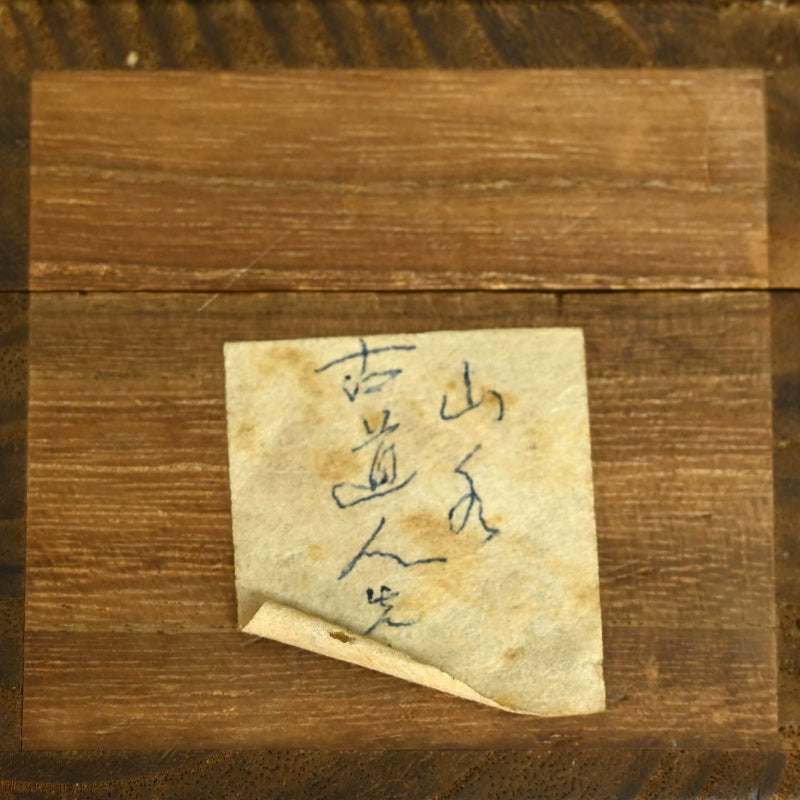 山水
古道人先